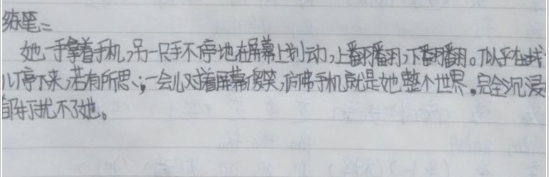 练笔二
她一手拿着手机,另一只手不停地在屏幕上划动,上翻翻,下翻翻。似乎在找
儿停下来,若有所思;一会儿对着屏幕傻笑,仿佛手机就是她整个世界。完全沉浸
都打扰不了她。